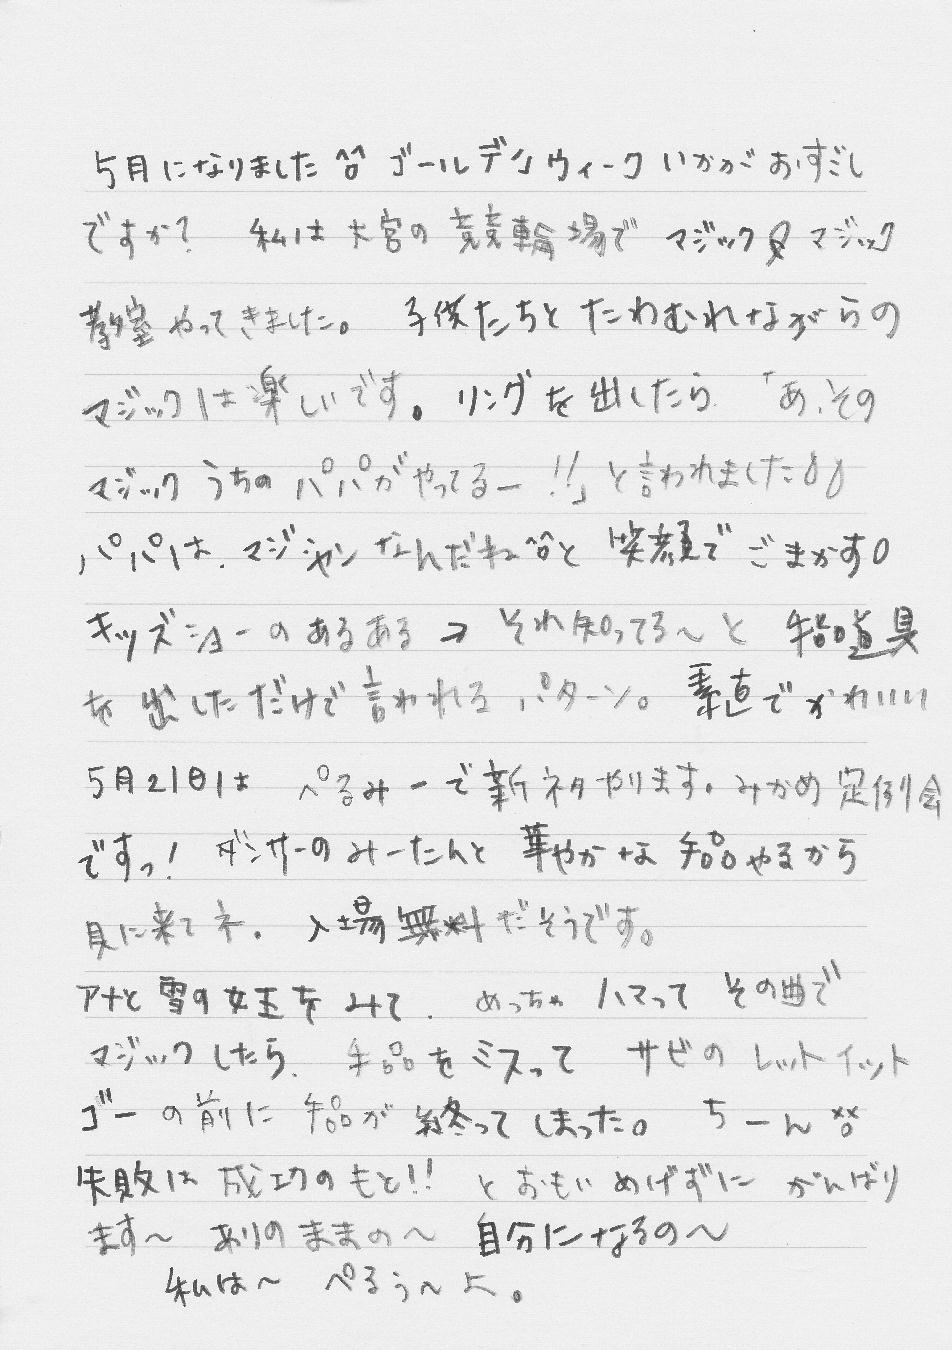 5月になりました^o^ ゴールデンウィーク いかがおすごし
ですか? 私は大宮の競輪場で マジック&マジック
教室やってきました。 子供たちとたわむれながらの
マジックは楽しいです。リングを出したら.「あ、その
マジックうちのパパがやってるー!!」と言われました
パパは、マジシャンなんだね^o^と 笑顔でごまかす。
キッズショーのあるある→それ知ってる〜と 手品道具
を出しただけで言われるパターン。素直でかわいい
5月21日は ぺるみーで新ネタやります。みかめ定例会
ですっ! ダンサーのみーたんと 華やかな手品やるから
見に来てネ. 入場無料だそうです。
アナと雪の女王をみて. めっちゃハマって その曲で
マジックしたら. 手品をミスって サビのレットイット
ゴーの前に手品が終ってしまった。 ちーんxox
失敗は成功のもと!! とおもい めげずに がんばり
ます〜 ありのままの〜 自分になるの〜
私は〜 ぺるぅ〜よ。